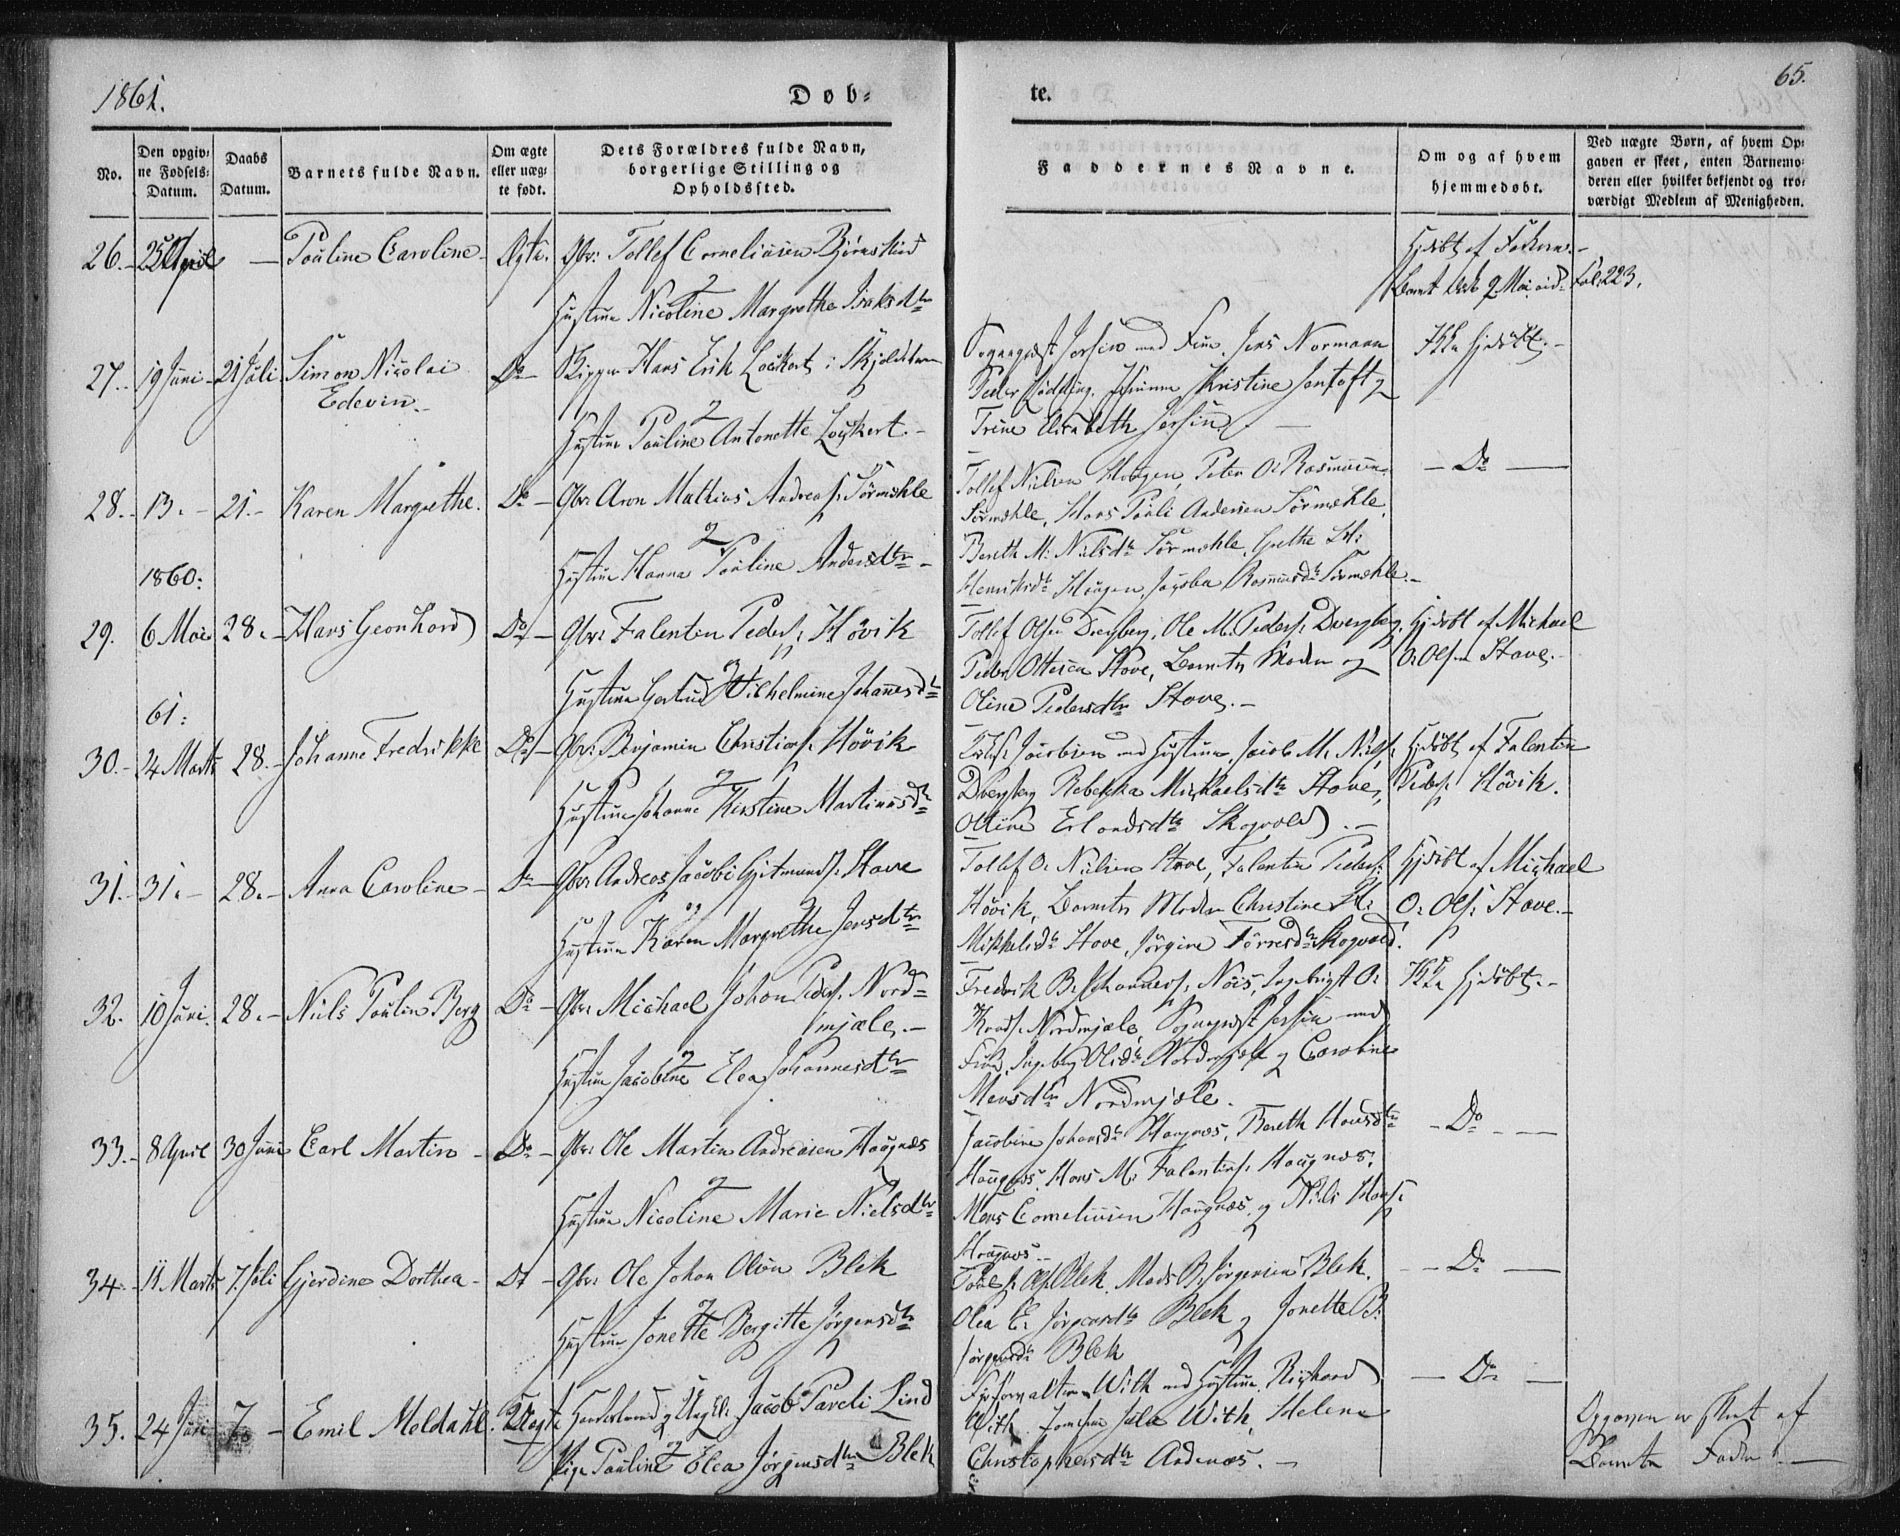 1861.
Døb-
te.
65.
No.
Den opgiv-
ne Fødsels-
Datum.
Daabs
Datum.
Barnets fulde Navn.
Om ægte
eller uæg-
te født.
Dets Forældres fulde Navn,
borgerlige Stilling og
Opholdssted.
Faddernes Navne.
Om og af hvem
hjemmedøbt.
Ved uægte Børn, af hvem Op-
gaven er skeet, enten Barnemo-
deren eller hvilket bekjendt og tro-
værdigt Medlem af Menigheden.
26. 25 April — Pouline Caroline Ægte. Gbr: Tollef Corneliusen Bjørnskind
Hustrue Nicoline Margrethe Isaksdtr
Hjdøbt af
Fol. 223.
27. 19 Juni 21 Juli Simon Nicolai
Edevin
Do Skipper Hans Erik Lockert i
og
Hustrue Pouline Antonette Lockert.
med Frue, Jens Normann
Peder Kristine
Trine Elisabeth
Ikke hjdøbt.
28. 13. 21. Karen Margrethe. Do Gbr: Aron Mathias Andreas. Sørmæhle
og
Hustrue Hanna Pouline Andersdtr
Tollef Nilsen Haugen, Peter O. Rasmussen
Sørmæhle, Hans Pouli Andersen Sørmæhle,
Bereth M. Nielsdtr Sørmæhle, Grethe
Henriksdtr Haugen, Jacoba Rasmusdtr Sørmæhle.
Do
1860:
29. 6 Mai 28. Hans Geonhard Do Gbr: Falentin Peders. Høvik
og
Hustrue Gertrud Wilhelmine Johannesdtr
Tollef Olsen Dverberg, Ole M. Peders. Dverberg,
Peder Ottesen Stave, Barnets Moder og
Oline Pedersdtr Stave.
Hjdøbt af Michael
O. Olsen Stave.
61:
30. 24 Marts 28. Johanne Fredrikke Do Gbr: Benjamin Christians. Høvik
og
Hustrue Johanne Kirstine Martinusdtr
Jacobsen med Hustrue, Jacob M. Niels.
Dverberg Rebekka Michaelsdtr Stave,
Oline Erlandsdtr Skogvold.
Hjdøbt af Falentin
Peders. Høvik.
31. 31. 28. Anna Caroline Do Gbr: Andreas Jacobi Stave
og
Hustrue Karen Margrethe Jensdtr
Tollef O. Nielsen Stave, Falentin Peders.
Høvik, Barnets Moder Christine
Mikkelsdtr Stave, Jørgine Tørresdtr Skogvold.
Hjdøbt af Michael
O. Ols. Stave.
32. 10 Juni. 28. Niels Poulin Berg Do Gbr: Michael Johan Peders. Nord-
mjæle.
og
Hustrue Jacobine Elea Johannesdtr
Fredrik B. Johannes. Nøis, Ingebrigt O.
Knuds. Nordmjæle, med
Frue, Ingeborg Olsdtr Nordmjæle og Caroline
Monsdtr Nordmjæle.
Ikke hjdøbt.
33. 8 April 30 Juni Carl Martin Do Gbr: Ole Martin Andreasen Haugnæs
og
Hustrue Nicoline Marie Nielsdtr
Jacobine Johansdtr Haugnæs, Bereth Hansdtr
Haugnæs, Hans M. Falentins. Haugnæs,
Mons Corneliusen Haugnæs, og Niels Hans.
Haugnæs.
Do
34. 11 Marts 7. Juli Gjerdine Dorthea Do Gbr: Ole Johan Olsen Blek
og
Hustrue Jonette Bergitte Jørgensdtr
Ols. Blek, Mads B. Jørgensen Blek,
Olea E. Jørgensdtr Blek og Jonette B.
Jørgensdtr Blek
Do
35. 24 Juni 7 Emil Moldahl. Uægte Jacob Paveli Lind
og
Pige Pouline Elea Jørgensdtr Blek
With med Hustrue, Richard
With, With, Helena
Christophersdtr Andenæs.
Do
Opgaven er skeet af
Barnets Fader